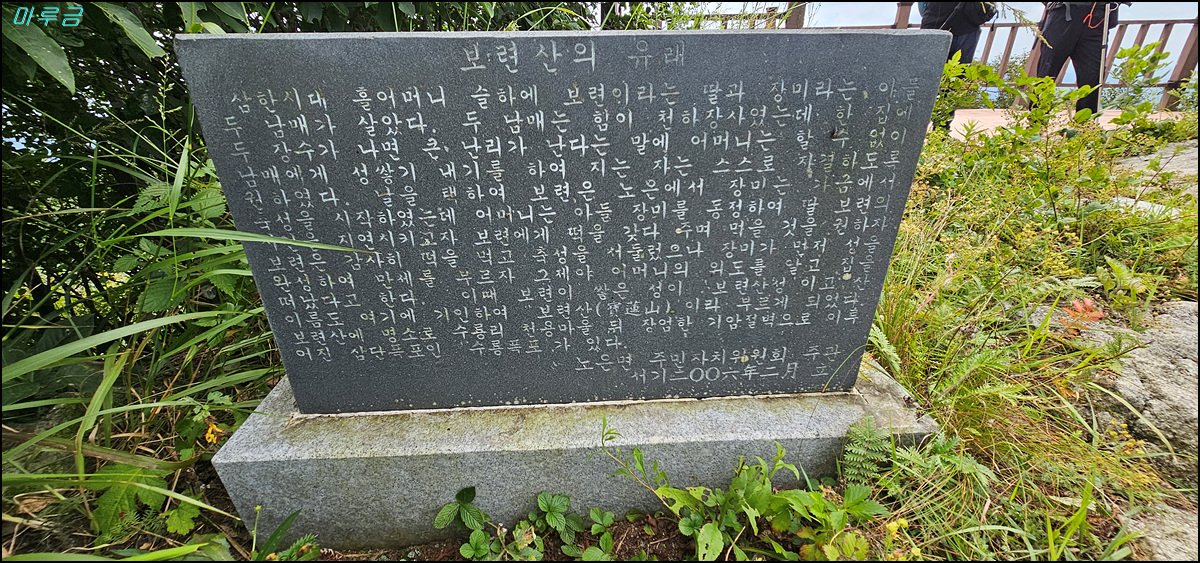 마루금
보련산의 유래
삼한시대 홀어머니 슬하에 보련이라는 딸과 장미라는 아들
두 남매가 살았다. 두 남매는 힘이 천하장사였는데 한 집에
두 장수가 나면 큰 난리가 난다는 말에 어머니는 할 수 없이
남매에게 성쌓기 내기를 하여 지는 자는 스스로 자결하도록
하였다. 날을 택하여 보련은 노은에서 장미는 가금에서
축성을 시작하였는데 어머니는 아들 장미를 동정하여 딸 보련의
축성을 지연시키고자 보련에게 떡을 갖다 주며 먹을 것을 권하자
보련은 감사히 떡을 먹고 축성을 서둘렀으나 장미가 먼저 성을
완성하여 만세를 부르자 그제야 어머니의 위도를 알고 집을
떠났다고 한다. 이때 보련이 쌓은 성이 보련산성이고 산
이름도 여기에 기인하여 보련산(寶蓮山)이라 부르게 되었다.
보련산에 명소로 수룡리 천용마을 뒤 장엄한 기암절벽으로 이루
어진 삼단폭포인 수룡폭포가 있다.
노은면 주민자치위원회 주관
서기二00六年二月 立